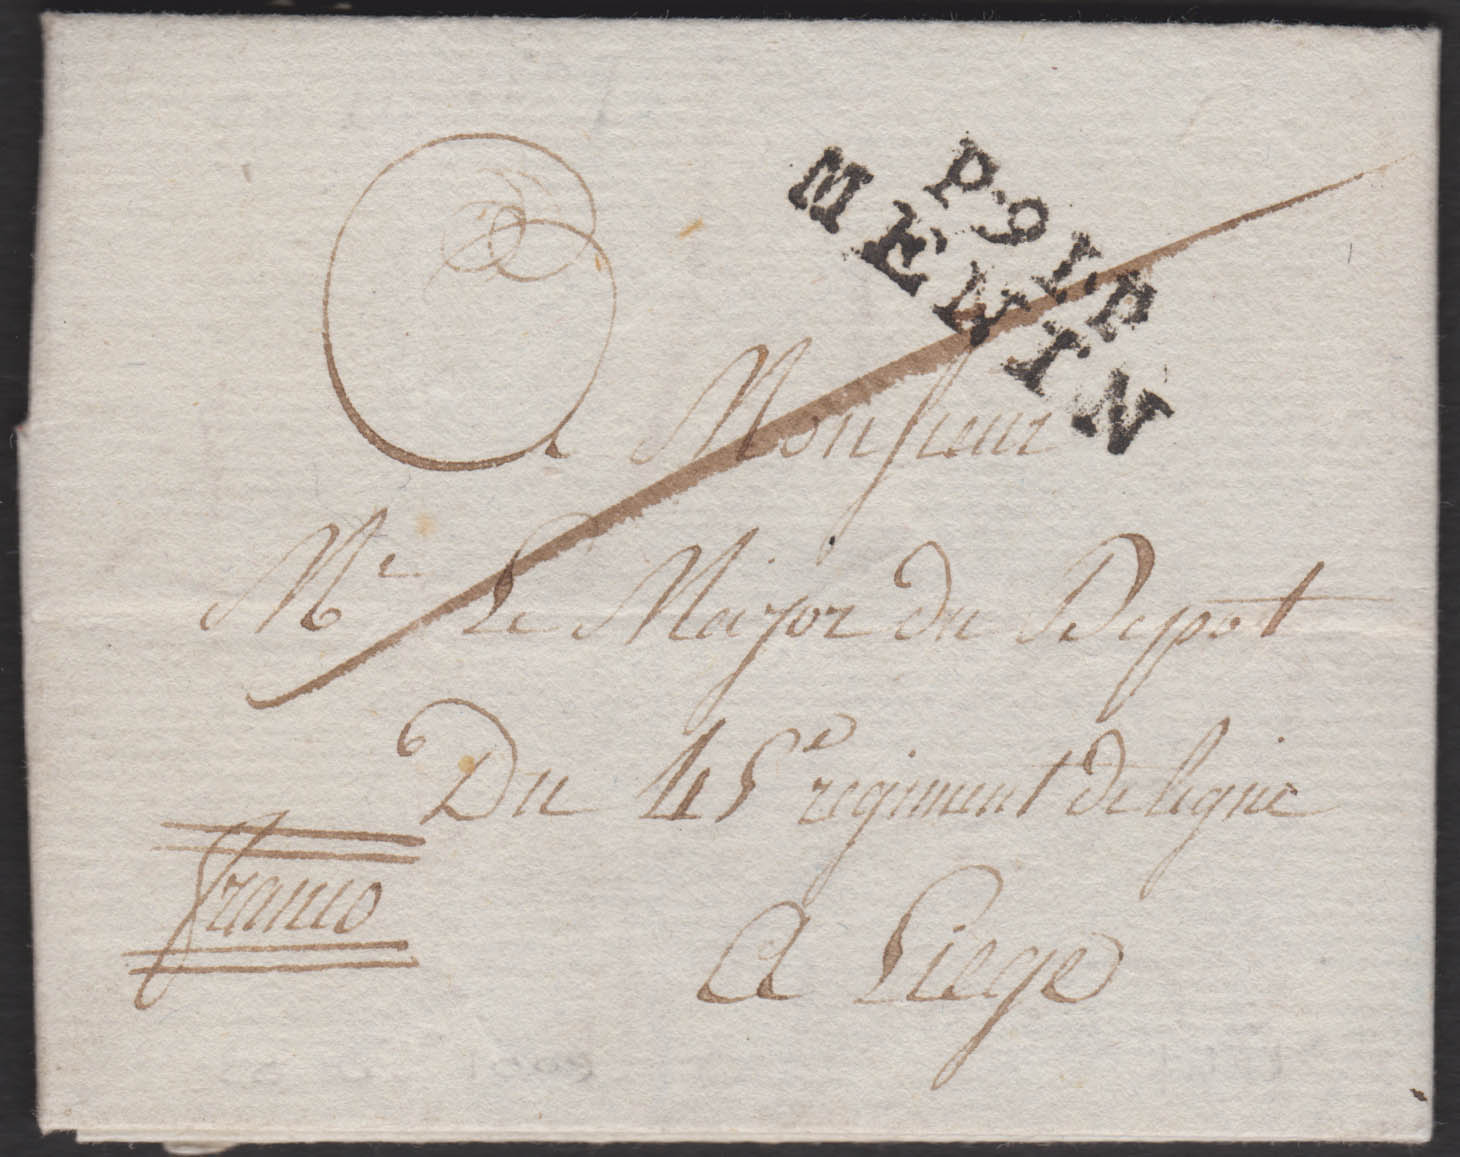 P.91.P
MENIN
A Monsieur
Mr Le Major du Depot
Du 45e regiment de ligne
franco
A Liege